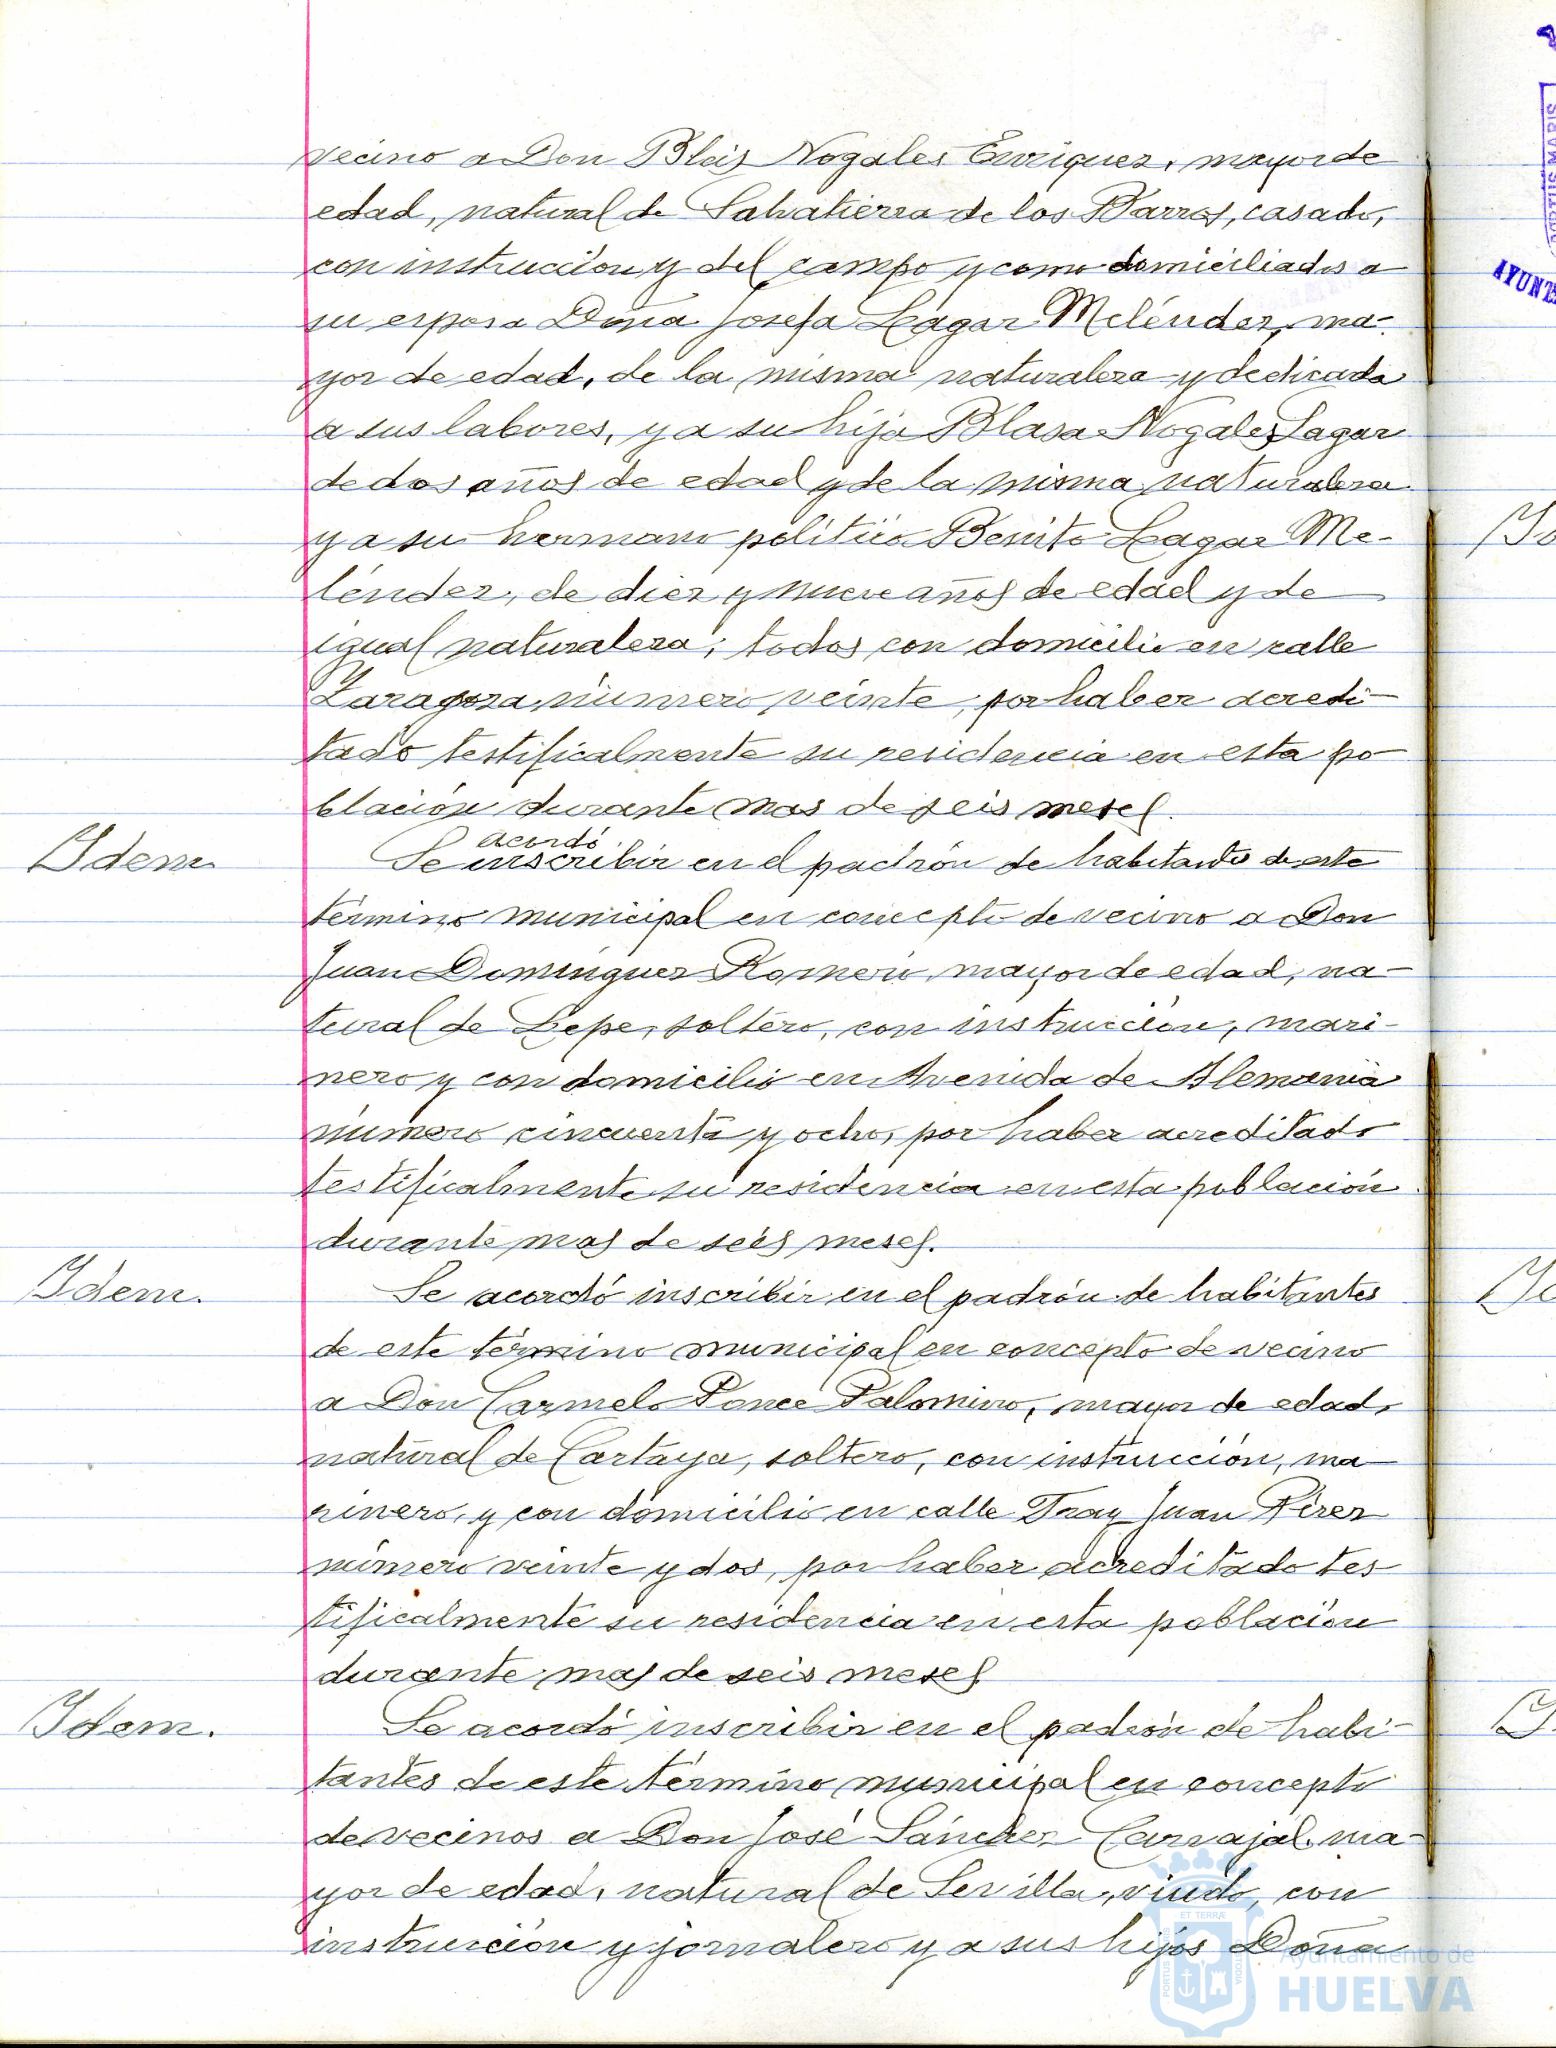 vecino a Don Blas Nogales Enriquez, mayor de
edad, natural de Salvatierra de los Barros, casado,
con instrucción y del campo y como domiciliados a
su esposa Doña Josefa Lagar Meléndez, ma-
yor de edad, de la misma naturaleza y dedicada
a sus labores, y a su hija Blasa Nogales Lagar
de dos años de edad y de la misma naturaleza
y a su hermano político Benito Lagar Me-
léndez, de diez y nueve años de edad y de
igual naturaleza, todos con domicilio en calle
Zaragoza, número veinte, por haber acredi-
tado testificalmente su residencia en esta po-
blación durante mas de seis meses.
Idem
acordó
Se inscribir en el padrón de habitantes de este
término municipal en concepto de vecino a Don
Juan Domínguez Romero, mayor de edad, na-
tural de Lepe, soltero, con instrucción, mari-
nero y con domicilio en Avenida de Alemania
número cincuenta y ocho, por haber acreditado
testificalmente su residencia en esta población
durante mas de seis meses.
Idem.
Se acordó inscribir en el padrón de habitantes
de este término municipal en concepto de vecino
a Don Carmelo Ponce Palomino, mayor de edad,
natural de Cartaya, soltero, con instrucción, ma-
rinero, y con domicilio en calle Fray Juan Pérez
número veinte y dos, por haber acreditado tes
tificalmente su residencia en esta población
durante mas de seis meses
Idem.
Se acordó inscribir en el padrón de habi-
tantes de este término municipal en concepto
de vecinos a Don José Sánchez Carvajal, ma-
yor de edad, natural de Sevilla, viudo, con
instrucción y jornalero y a sus hijos Doña
Ayuntamiento de
HUELVA